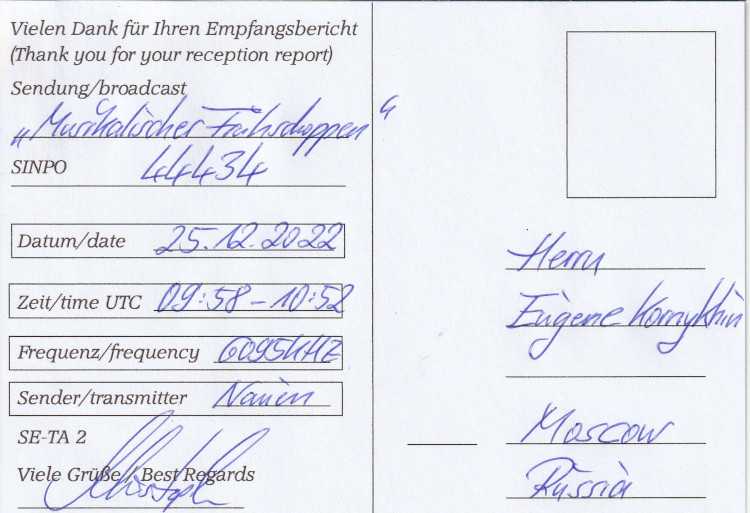 Vielen Dank für Ihren Empfangsbericht
(Thank you for your reception report)
Sendung/broadcast
„Musikalischer Frühschoppen“
SINPO 44434
Datum/date 25.12.2022
Zeit/time UTC 09:58 – 10:52
Frequenz/frequency 6095kHz
Sender/transmitter Nauen
SE-TA 2
Viele Grüße / Best Regards
Christoph
Herrn
Eugene
Moscow
Russia